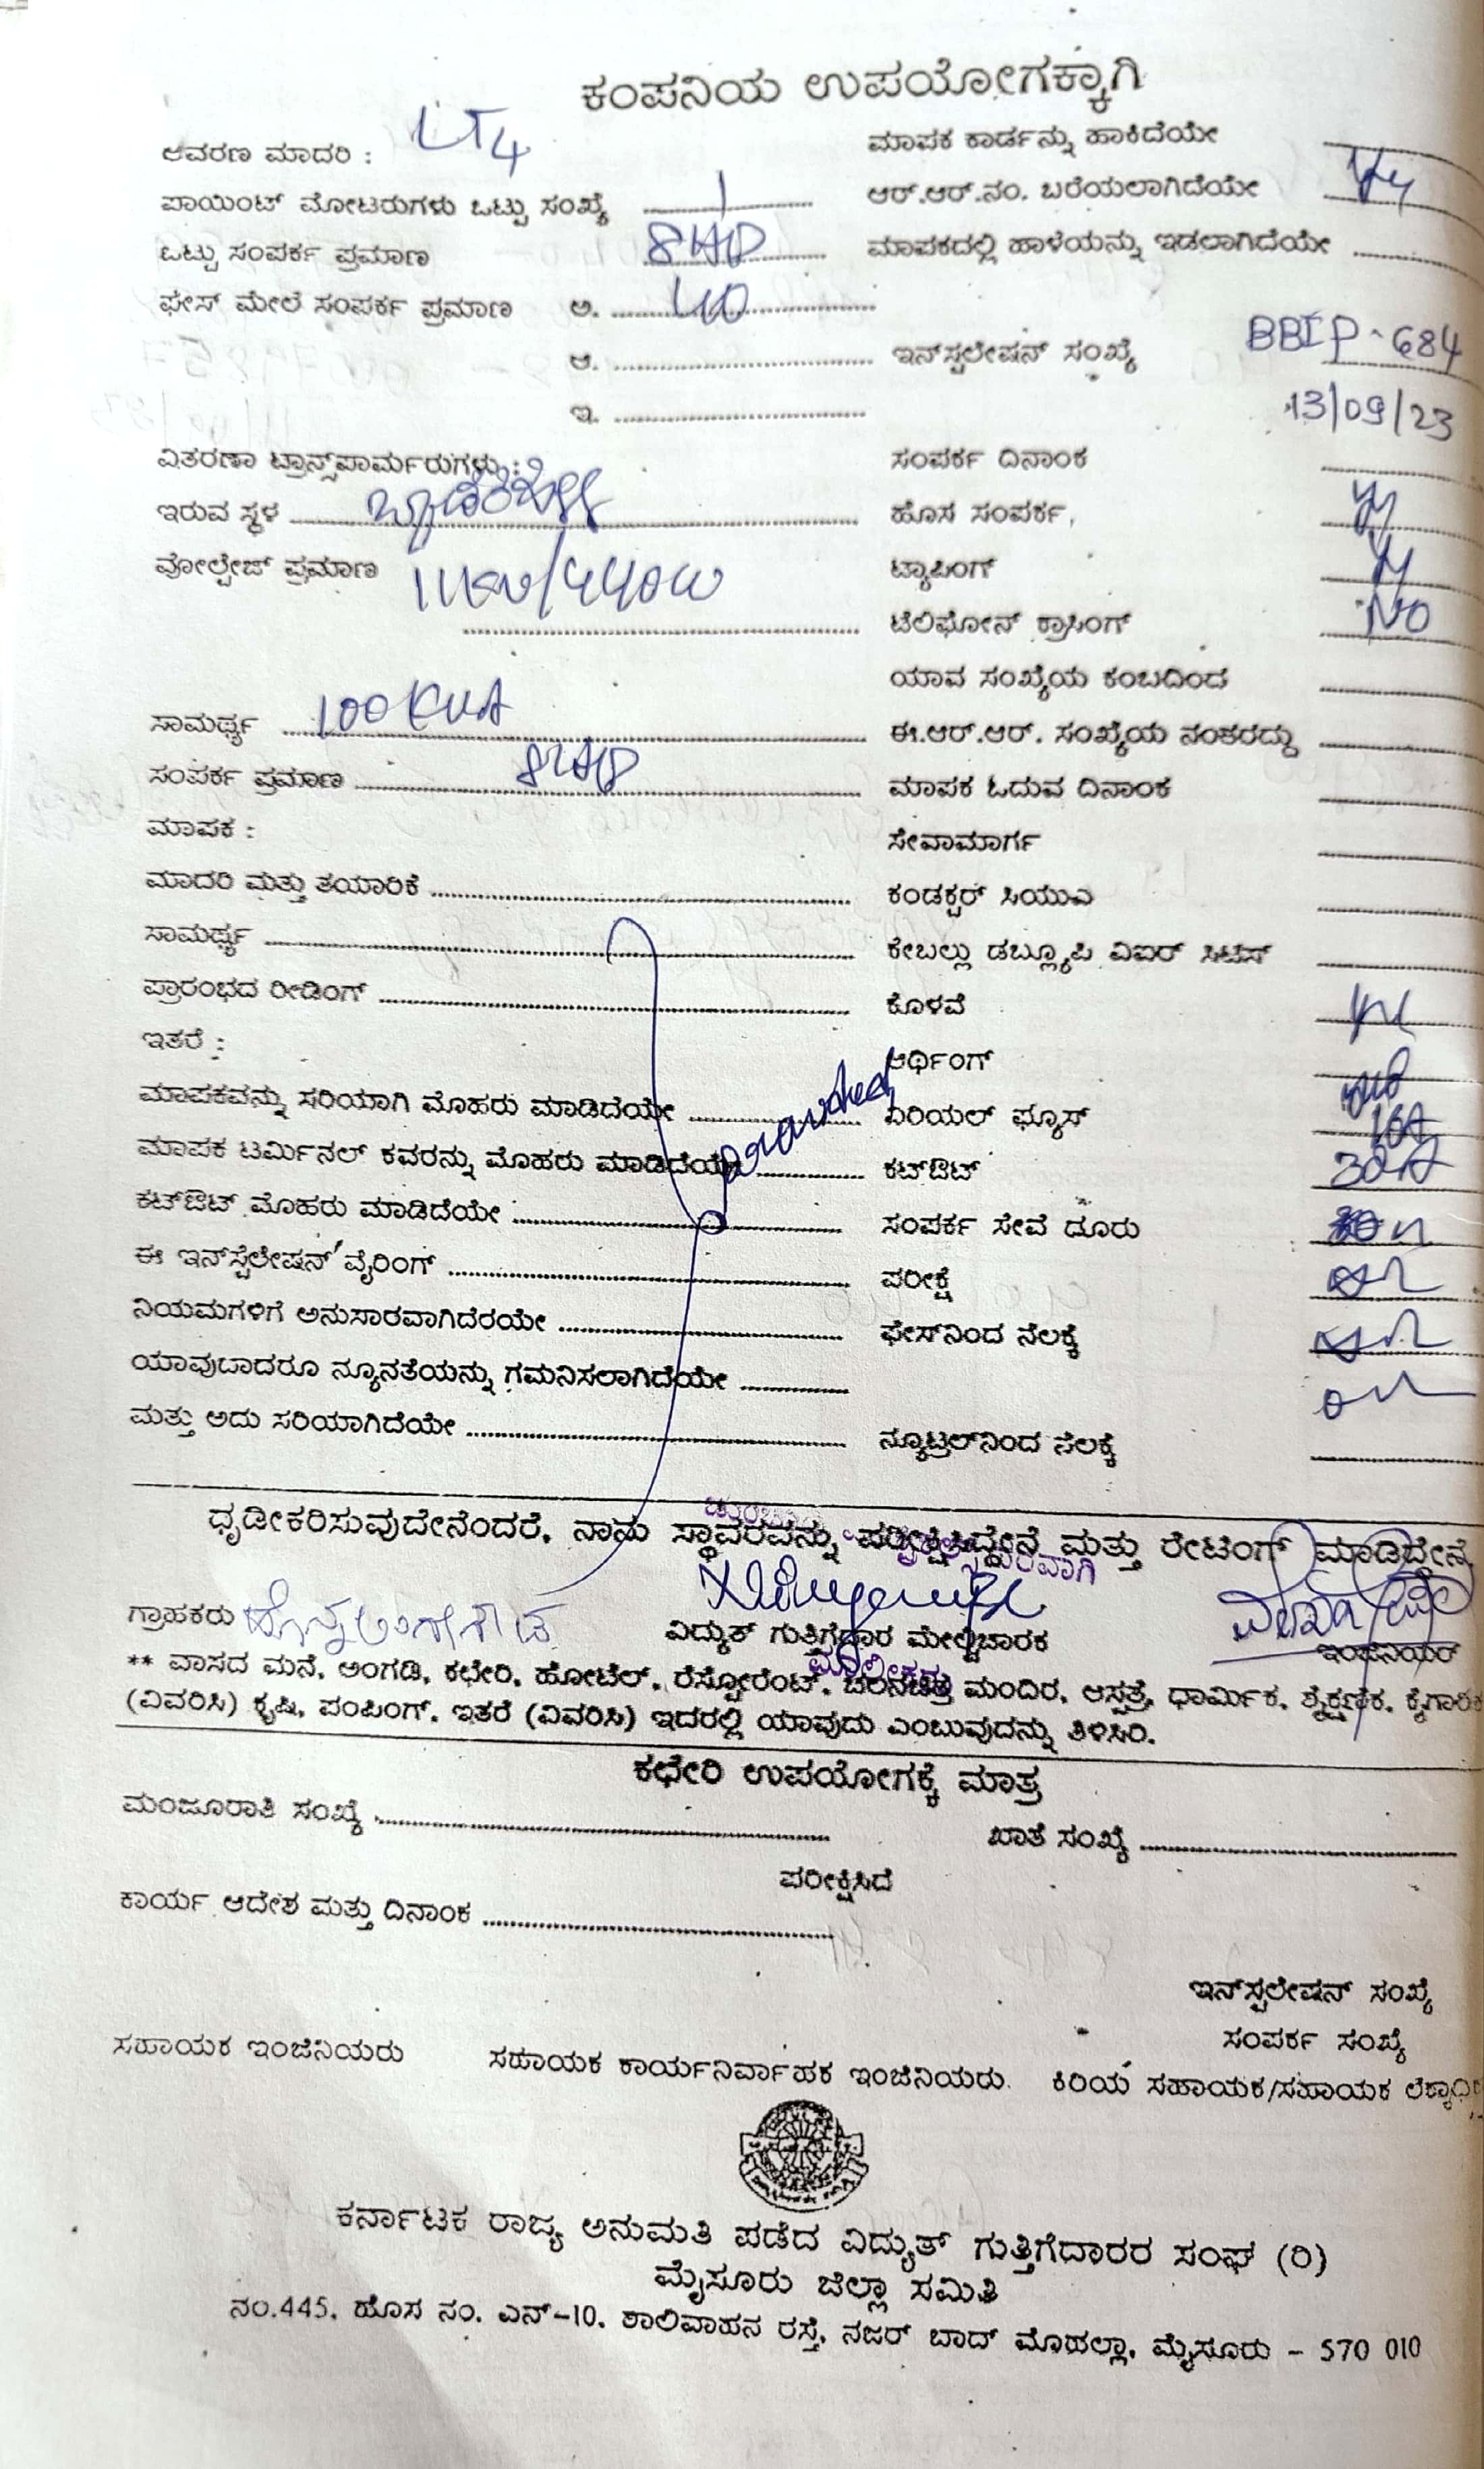 ಕಂಪನಿಯ ಉಪಯೋಗಕ್ಕಾಗಿ
ಆವರಣ ಮಾದರಿ : LT4
ಮಾಪಕ ಕಾರ್ಡನ್ನು ಹಾಕಿದೆಯೇ
ಪಾಯಿಂಟ್ ಮೋಟರುಗಳು ಒಟ್ಟು ಸಂಖ್ಯೆ 1
ಆರ್.ಆರ್.ನಂ. ಬರೆಯಲಾಗಿದೆಯೇ
ಒಟ್ಟು ಸಂಪರ್ಕ ಪ್ರಮಾಣ 8HP
ಮಾಪಕದಲ್ಲಿ ಹಾಳೆಯನ್ನು ಇಡಲಾಗಿದೆಯೇ
ಫೇಸ್ ಮೇಲೆ ಸಂಪರ್ಕ ಪ್ರಮಾಣ ಅ.
ಆ.
ಇನ್‌ಸ್ಟಲೇಷನ್ ಸಂಖ್ಯೆ BBIP-684
ಇ.
13/09/23
ವಿತರಣಾ ಟ್ರಾನ್ಸ್‌ಪಾರ್ಮರುಗಳು :
ಸಂಪರ್ಕ ದಿನಾಂಕ
ಇರುವ ಸ್ಥಳ
ಹೊಸ ಸಂಪರ್ಕ,
ವೋಲ್ಟೇಜ್ ಪ್ರಮಾಣ 11KV/440V
ಟ್ಯಾಪಿಂಗ್
ಟೆಲಿಫೋನ್ ಕ್ರಾಸಿಂಗ್ NO
ಯಾವ ಸಂಖ್ಯೆಯ ಕಂಬದಿಂದ
ಸಾಮರ್ಥ್ಯ 100 KVA
ಈ.ಆರ್.ಆರ್. ಸಂಖ್ಯೆಯ ನಂತರದ್ದು
ಸಂಪರ್ಕ ಪ್ರಮಾಣ 8HP
ಮಾಪಕ ಓದುವ ದಿನಾಂಕ
ಮಾಪಕ :
ಸೇವಾಮಾರ್ಗ
ಮಾದರಿ ಮತ್ತು ತಯಾರಿಕೆ
ಕಂಡಕ್ಟರ್ ಸಿಯುಎ
ಸಾಮರ್ಥ್ಯ
ಕೇಬಲ್ಲು ಡಬ್ಲ್ಯೂಪಿ ವಿಐರ್ ಸಿಟಿಸ್
ಪ್ರಾರಂಭದ ರೀಡಿಂಗ್
ಕೊಳವೆ
ಇತರೆ :
ಆರ್ಥಿಂಗ್
ಮಾಪಕವನ್ನು ಸರಿಯಾಗಿ ಮೊಹರು ಮಾಡಿದೆಯೇ
ಏರಿಯಲ್ ಫ್ಯೂಸ್
ಮಾಪಕ ಟರ್ಮಿನಲ್ ಕವರನ್ನು ಮೊಹರು ಮಾಡಿದೆಯೇ
ಕಟ್‌ಔಟ್ 30A
ಕಟ್‌ಔಟ್ ಮೊಹರು ಮಾಡಿದೆಯೇ
ಸಂಪರ್ಕ ಸೇವೆ ದೂರು
ಈ ಇನ್‌ಸ್ಟೆಲೇಷನ್ ವೈರಿಂಗ್
ಪರೀಕ್ಷೆ
ನಿಯಮಗಳಿಗೆ ಅನುಸಾರವಾಗಿದೆರಯೇ
ಫೇಸ್‌ನಿಂದ ನೆಲಕ್ಕೆ
ಯಾವುದಾದರೂ ನ್ಯೂನತೆಯನ್ನು ಗಮನಿಸಲಾಗಿದೆಯೇ
ಮತ್ತು ಅದು ಸರಿಯಾಗಿದೆಯೇ
ನ್ಯೂಟ್ರಲ್‌ನಿಂದ ನೆಲಕ್ಕೆ
ಧೃಡೀಕರಿಸುವುದೇನೆಂದರೆ, ನಾನು ಸ್ಥಾವರವನ್ನು ಪರೀಕ್ಷಿಸಿದ್ದೇನೆ ಮತ್ತು ರೇಟಿಂಗ್ ಮಾಡಿದ್ದೇನೆ
ಗ್ರಾಹಕರು
ವಿದ್ಯುತ್ ಗುತ್ತಿಗೆದಾರ ಮೇಲ್ವಿಚಾರಕ
ಇಂಜಿನಿಯರ್
** ವಾಸದ ಮನೆ, ಅಂಗಡಿ, ಕಛೇರಿ, ಹೋಟೆಲ್, ರೆಸ್ಟೋರೆಂಟ್, ಚಲನಚಿತ್ರ ಮಂದಿರ, ಆಸ್ಪತ್ರೆ, ಧಾರ್ಮಿಕ, ಶೈಕ್ಷಣಿಕ, ಕೈಗಾರಿಕ
(ವಿವರಿಸಿ) ಕೃಷಿ, ಪಂಪಿಂಗ್, ಇತರೆ (ವಿವರಿಸಿ) ಇದರಲ್ಲಿ ಯಾವುದು ಎಂಬುವುದನ್ನು ತಿಳಿಸಿರಿ.
ಕಛೇರಿ ಉಪಯೋಗಕ್ಕೆ ಮಾತ್ರ
ಮಂಜೂರಾತಿ ಸಂಖ್ಯೆ
ಖಾತೆ ಸಂಖ್ಯೆ
ಪರೀಕ್ಷಿಸಿದೆ
ಕಾರ್ಯ ಆದೇಶ ಮತ್ತು ದಿನಾಂಕ
ಇನ್‌ಸ್ಟಲೇಷನ್ ಸಂಖ್ಯೆ
ಸಂಪರ್ಕ ಸಂಖ್ಯೆ
ಸಹಾಯಕ ಇಂಜಿನಿಯರು ಸಹಾಯಕ ಕಾರ್ಯನಿರ್ವಾಹಕ ಇಂಜಿನಿಯರು. ಕಿರಿಯ ಸಹಾಯಕ/ಸಹಾಯಕ
ಕರ್ನಾಟಕ ರಾಜ್ಯ ಅನುಮತಿ ಪಡೆದ ವಿದ್ಯುತ್ ಗುತ್ತಿಗೆದಾರರ ಸಂಘ (ರಿ)
ಮೈಸೂರು ಜಿಲ್ಲಾ ಸಮಿತಿ
ನಂ.445, ಹೊಸ ನಂ. ಎನ್-10, ಶಾಲಿವಾಹನ ರಸ್ತೆ, ನಜರ್ ಬಾದ್ ಮೊಹಲ್ಲಾ, ಮೈಸೂರು - 570 010